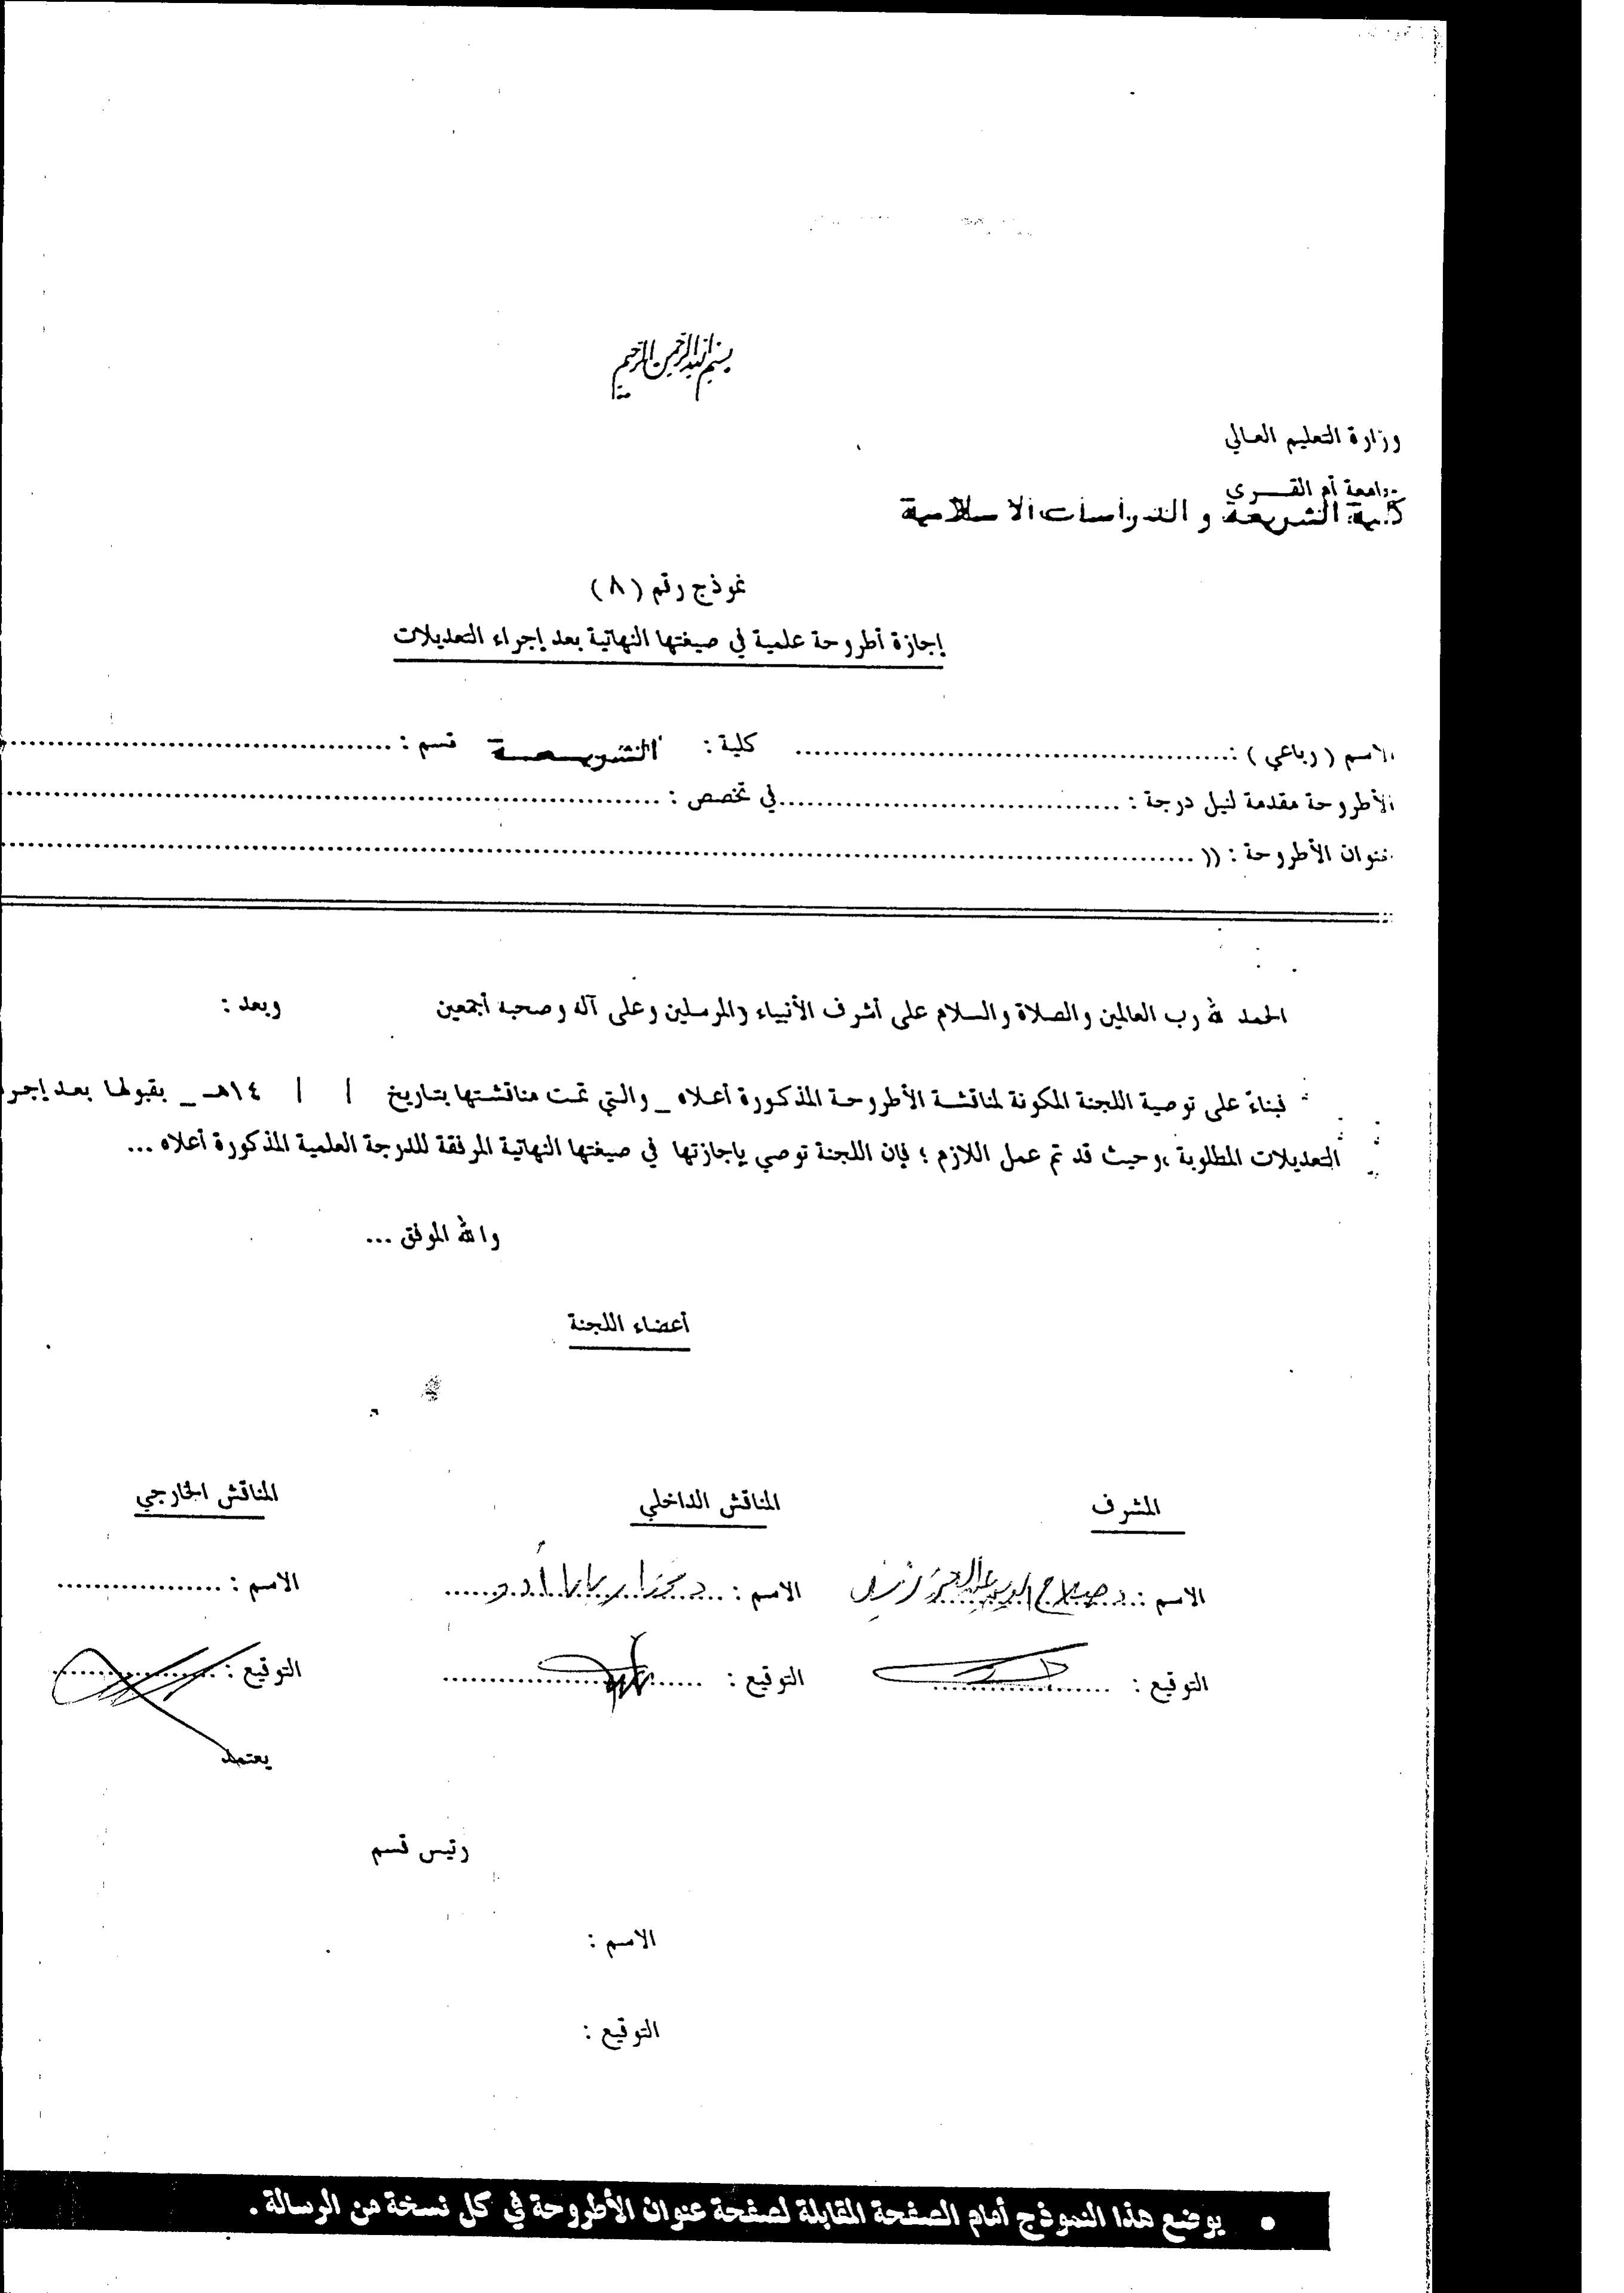 بسم الله الرحمن الرحيم
وزارة التعليم العالي
جامعة أم القــــرى
كلية الشريعة والدراسات الاسلامية
نموذج رقم (٨)
إجازة أطروحة علمية في صيغتها النهائية بعد إجراء التعديلات
الاسم (رباعي) : ........................ كلية : الشريعـــة قسم : ........................
الأطروحة مقدمة لنيل درجة : ........................ في تخصص : ........................
عنوان الأطروحة : (( ........................
الحمد لله رب العالمين والصلاة والسلام على أشرف الأنبياء والمرسلين وعلى آله وصحبه أجمعين وبعد :
فبناءً على توصية اللجنة المكونة لمناقشة الأطروحة المذكورة أعلاه _ والتي تمت مناقشتها بتاريخ / / ١٤هـ _ بقبولها بعد إجر
التعديلات المطلوبة ،وحيث قد تم عمل اللازم ؛ فإن اللجنة توصي بإجازتها في صيغتها النهائية المرفقة للدرجة العلمية المذكورة أعلاه ...
والله الموفق ...
أعضاء اللجنة
المشرف المناقش الداخلي المناقش الخارجي
الاسم : د. صلاح الدين عبد العزيز الاسم : د. بابا أدو الاسم : ..................
التوقيع : .................. التوقيع : .................. التوقيع : ..................
يعتمد
رئيس قسم
الاسم :
التوقيع :
● يوضع هذا النموذج أمام الصفحة المقابلة لصفحة عنوان الأطروحة في كل نسخة من الرسالة .